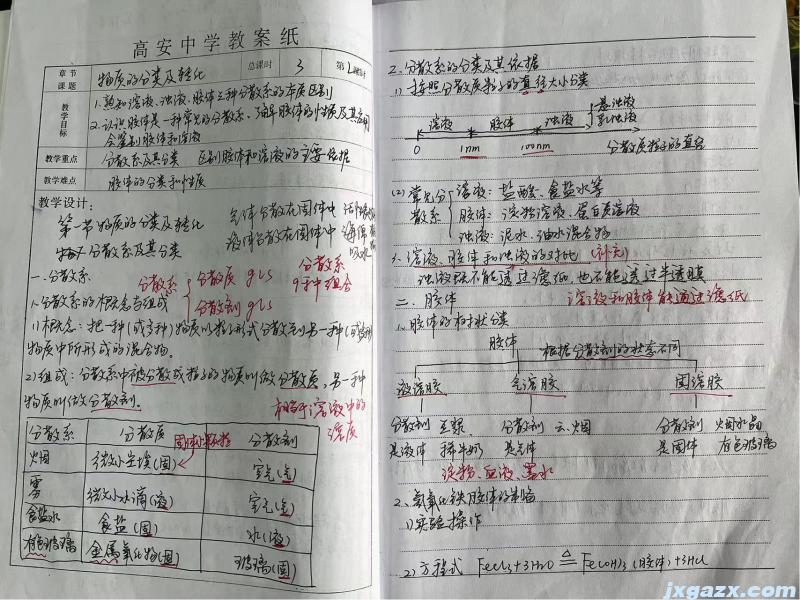 高安中学教案纸
章节课题 物质的分类及转化 总课时 3 第1课时
教学目标 1.熟知溶液、浊液、胶体三种分散系的本质区别
2.认识胶体是一种常见的分散系、了解胶体的性质及其应用
会鉴别胶体和溶液
教学重点 分散系及其分类 区别胶体和溶液的主要依据
教学难点 胶体的分类和性质
教学设计:
第一节 物质的分类及转化
气体分散在固体中
液体分散在固体中
分散系及其分类
一、分散系
分散系 分散质 g l s 分散系
分散剂 g l s 9种组合
1.分散系的概念与组成
1)概念:把一种(或多种)物质以粒子形式分散到另一种(或多种)
物质中所形成的混合物。
2)组成:分散系中被分散成粒子的物质叫做分散质,另一种
物质叫做分散剂.
相当于溶液中的
溶质
分散系 分散质 分散剂
固体小颗粒
烟 微小尘埃(固) 空气(气)
雾 微小水滴(液) 空气(气)
食盐水 食盐(固) 水(液)
有色玻璃 金属氧化物(固) 玻璃(固)
2.分散系的分类及其依据
1)按照分散质粒子的直径大小分类
溶液 胶体 浊液 悬浊液
乳浊液
0 1nm 100nm 分散质粒子的直径
(2)常见分散系 溶液:盐酸、食盐水等
胶体:淀粉溶液、蛋白质溶液
浊液:泥水、油水混合物
3.溶液、胶体和浊液的对比(补充)
浊液既不能透过滤纸,也不能透过半透膜
溶液和胶体能通过滤纸
二、胶体
1.胶体的分类
胶体
根据分散剂的状态不同
液溶胶 气溶胶 固溶胶
分散剂 豆浆 分散剂 云、烟 分散剂 烟水晶
是液体 稀牛奶 是气体 是固体 有色玻璃
淀粉、血液、墨水
2.氢氧化铁胶体的制备
1)实验操作
2)方程式 FeCl3+3H2O △ Fe(OH)3(胶体)+3HCl
jxgazx.com